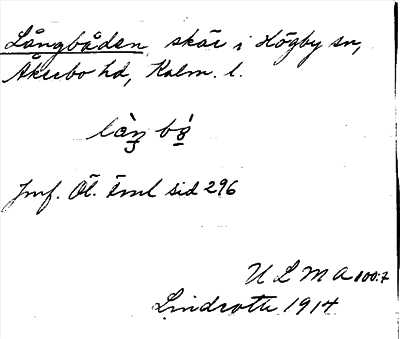 Långbåden, skär i Högby sn,
Åkerbo hd, Kalm. l.
Jmf. Öl. Fml sid 296
U L M A 100:7
Lindroth 1914